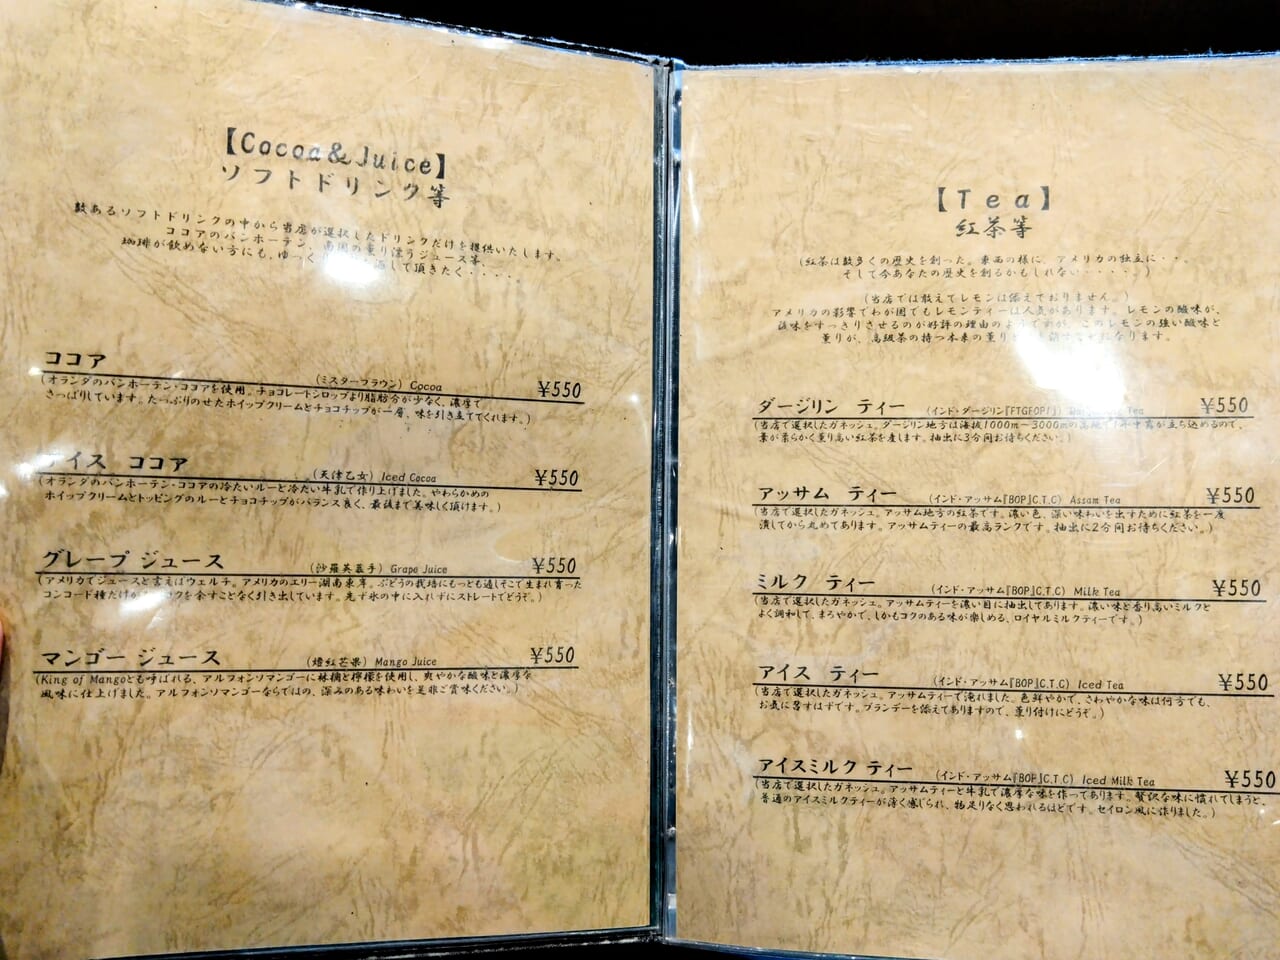 【Cocoa&Juice】
ソフトドリンク等
数あるソフトドリンクの中から当店が選択したドリンクだけを提供いたします。
ココアのバンホーテン、南国の薫り漂うジュース等、
珈琲が飲めない方にも、ゆっく して頂きたく・・・・
ココア (ミスターブラウン) Cocoa ¥550
(オランダのバンホーテン・ココアを使用。チョコレートシロップより脂肪分が少なく、濃厚で
さっぱりしています。たっぷりのせたホイップクリームとチョコチップが一層、味を引き立ててくれます。)
アイス ココア (天津乙女) Iced Cocoa ¥550
(オランダのバンホーテン・ココアの冷たいルーと冷たい牛乳で作り上げました。やわらかめの
ホイップクリームとトッピングのルーとチョコチップがバランス良く、最後まで美味しく頂けます。)
グレープ ジュース (沙羅英慕手) Grape Juice ¥550
(アメリカでジュースと言えばウェルチ。アメリカのエリー湖南東岸。ぶどうの栽培にもっとも適しそこで生まれ育った
コンコード種だけが クを余すことなく引き出しています。先ず氷の中に入れずにストレートでどうぞ。)
マンゴー ジュース (橙紅芒果) Mango Juice ¥550
(King of Mangoとも呼ばれる、アルフォンソマンゴーに林檎と檸檬を使用し、爽やかな酸味と濃厚な
風味に仕上げました。アルフォンソマンゴーならではの、深みのある味わいを是非ご賞味ください。)
【Tea】
紅茶等
(紅茶は数多くの歴史を創った。東西の様に、アメリカの独立に・・。
そして今あなたの歴史を創るかもしれない・・・・。)
(当店では敢えてレモンは添えておりません。)
アメリカの影響でわが国でもレモンティーは人気があります。レモンの酸味が、
渋味をすっきりさせるのが好評の理由のようですが、このレモンの強い酸味と
薫りが、高級茶の持つ本来の薫り になります。
ダージリン ティー (インド・ダージリン『FTGFOP1』) Tea ¥550
(当店で選択したガネッシュ。ダージリン地方は海抜1000m－3000mの高地で1年中霧が立ち込めるので、
葉が柔らかく薫り高い紅茶を産します。抽出に3分間お待ちください。)
アッサム ティー (インド・アッサム『BOP』C.T.C) Assam Tea ¥550
(当店で選択したガネッシュ。アッサム地方の紅茶です。濃い色、深い味わいを出すために紅茶を一度
潰してから丸めてあります。アッサムティーの最高ランクです。抽出に2分間お待ちください。)
ミルク ティー (インド・アッサム『BOP』C.T.C) Milk Tea ¥550
(当店で選択したガネッシュ。アッサムティーを濃い目に抽出してあります。濃い味と香り高いミルクと
よく調和して、まろやかで、しかもコクのある味が楽しめる、ロイヤルミルクティーです。)
アイス ティー (インド・アッサム『BOP』C.T.C) Iced Tea ¥550
(当店で選択したガネッシュ。アッサムティーで淹れました。色鮮やかで、さわやかな味は何方でも、
お気に召すはずです。ブランデーを添えてありますので、薫り付けにどうぞ。)
アイスミルク ティー (インド・アッサム『BOP』C.T.C) Iced Milk Tea ¥550
(当店で選択したガネッシュ。アッサムティーと牛乳で濃厚な味を作ってあります。贅沢な味に慣れてしまうと、
普通のアイスミルクティーが薄く感じられ、物足りなく思われるほどです。セイロン風に作りました。)